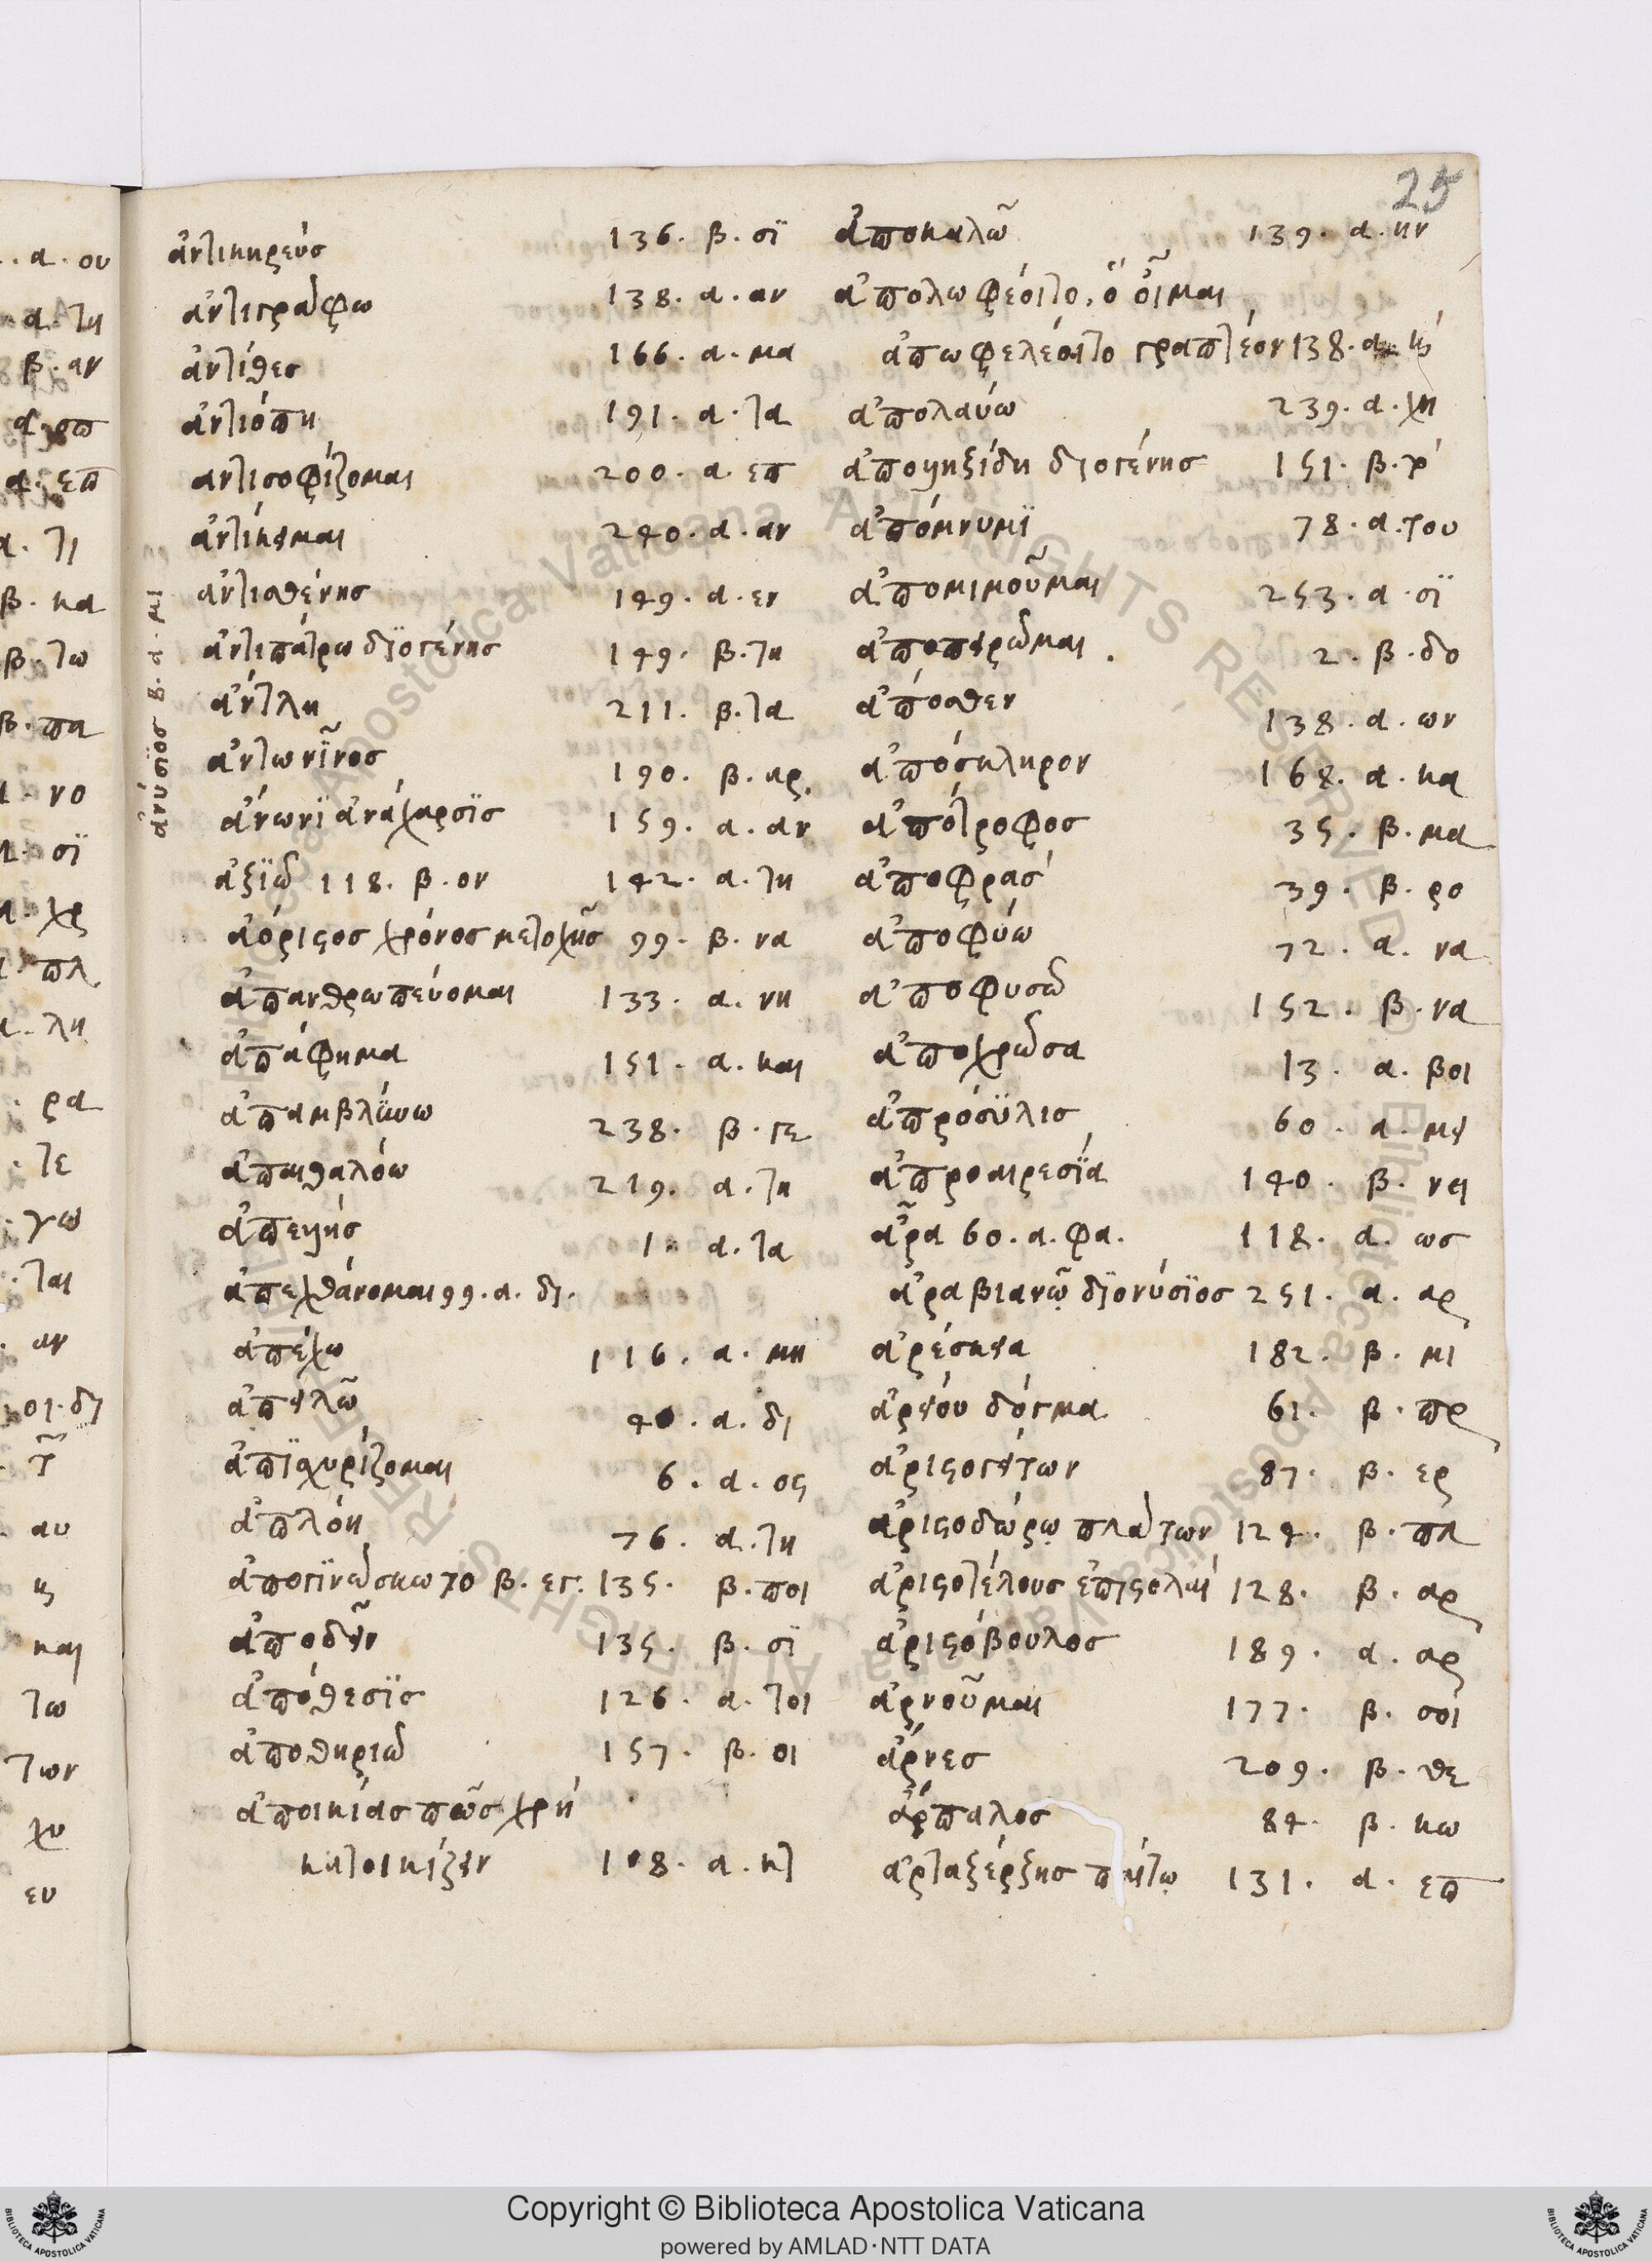 25
ἀντικηρεύσ 136. β. σϊ
ἀντιγράφω 138. α. αν
ἀντίθεσ 166. α. μα
ἀντιόπη 191. α. τα
αντισοφίζομαι 200. α. επ
ἀντίκειμαι 240. α. αν
ἀντισθένησ 149. α. εν
ἀντιπάτρω διογένησ 149. β. τη
ἀντλη 211. β. τα
ἀντωνῖνοσ 190. β. κρ
ἀνωνϊ ἀνάχαρσϊσ 159. α. αν
ἀξϊῶ 118. β. ον 142. α. τη
ἀόριστοσ χρόνοσ μετοχῆσ 99. β. να
ἀπανθρωπεύομαι 133. α. νη
ἀπάφημα 151. α. και
ἀπαμβλύνω 238. β. γε
ἀπαιθαλόω 219. α. τη
ἀπεικήσ 1. α. τα
ἀπεχθάνομαι 99. α. δι.
ἀπέχω 116. α. μη
ἀπειλῶ 40. α. δι
ἀπϊσχυρίζομαι 6. α. οσ
ἀπλόη 76. α. τη
ἀπογϊνώσκω 70 β. εγ. 135. β. ποι
ἀποδεῖν 135. β. σϊ
ἀπόθεσϊσ 126. α. τοι
ἀποθηριῶ 157. β. οι
ἀποικίασ πῶσ χρή
κατοικίζειν 108. α. κτ
ἀνύσϊοσ β. α. μι
ἀποκαλῶ 139. α. κν
ἀπολωφέοιτο, ὅ οἶμαι
ἀπωφελέοιτο γραπτέον 138. α.
ἀπολαύω 239. α. χη
ἀποληξίδη διογένησ 151. β. τ
ἀπόμνυμϊ 78. α. του
ἀπομιμοῦμαι 253. α. σϊ
ἀποπειρῶμαι. 2. β. δο
ἀπόσθεν 138. α. ων
ἀπόσκληρον 168. α. κα
ἀπότροφοσ 35. β. μα
ἀποφράσ 39. β. ρο
ἀποφύω 72. α. να
ἀποφυσῶ 152. β. να
ἀποχρῶσα 13. α. βοι
ἀπρόσϋλισ 60. α. μει
ἀπροαιρεσϊα 140. β. νει
ἆρα 60. α. φα. 118. α. ωσ
ἀραβιανῷ διονύσϊοσ 251. α. αρ
ἀρέσκεια 182. β. μι
ἀρείου δόγμα 61. β. πρ
ἀριστογείτων 87. β. ερ
ἀριστοδώρῳ πλάτων 124. β. πλ
ἀριστοτέλουσ ἐπιστολαί 128. β. αρ
ἀριστόβουλοσ 189. α. αρ
ἀρνοῦμαι 177. β. σοι
ἄρνεσ 209. β. θε
ἅρπαλοσ 84. β. κω
ἀρταξέρξησ παίτῳ 131. α. επ
Copyright © Biblioteca Apostolica Vaticana
powered by AMLAD·NTT DATA